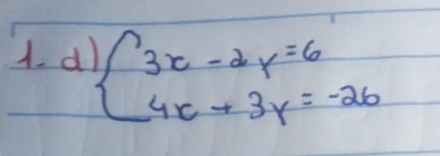 1. d) { 3x - 2y = 6
4x + 3y = -26